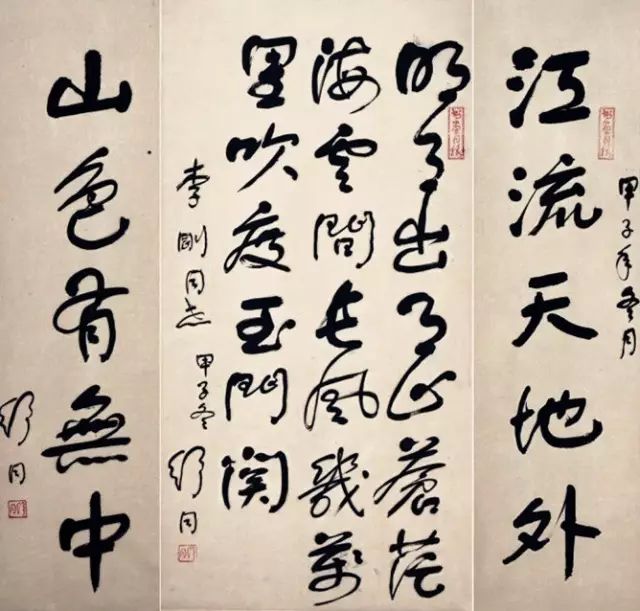 江流天地外
甲子年冬月
明月出天山蒼茫
海雲間長風幾萬
里吹度玉門関
李剛同志 甲子冬 舒同
山色有無中
舒同